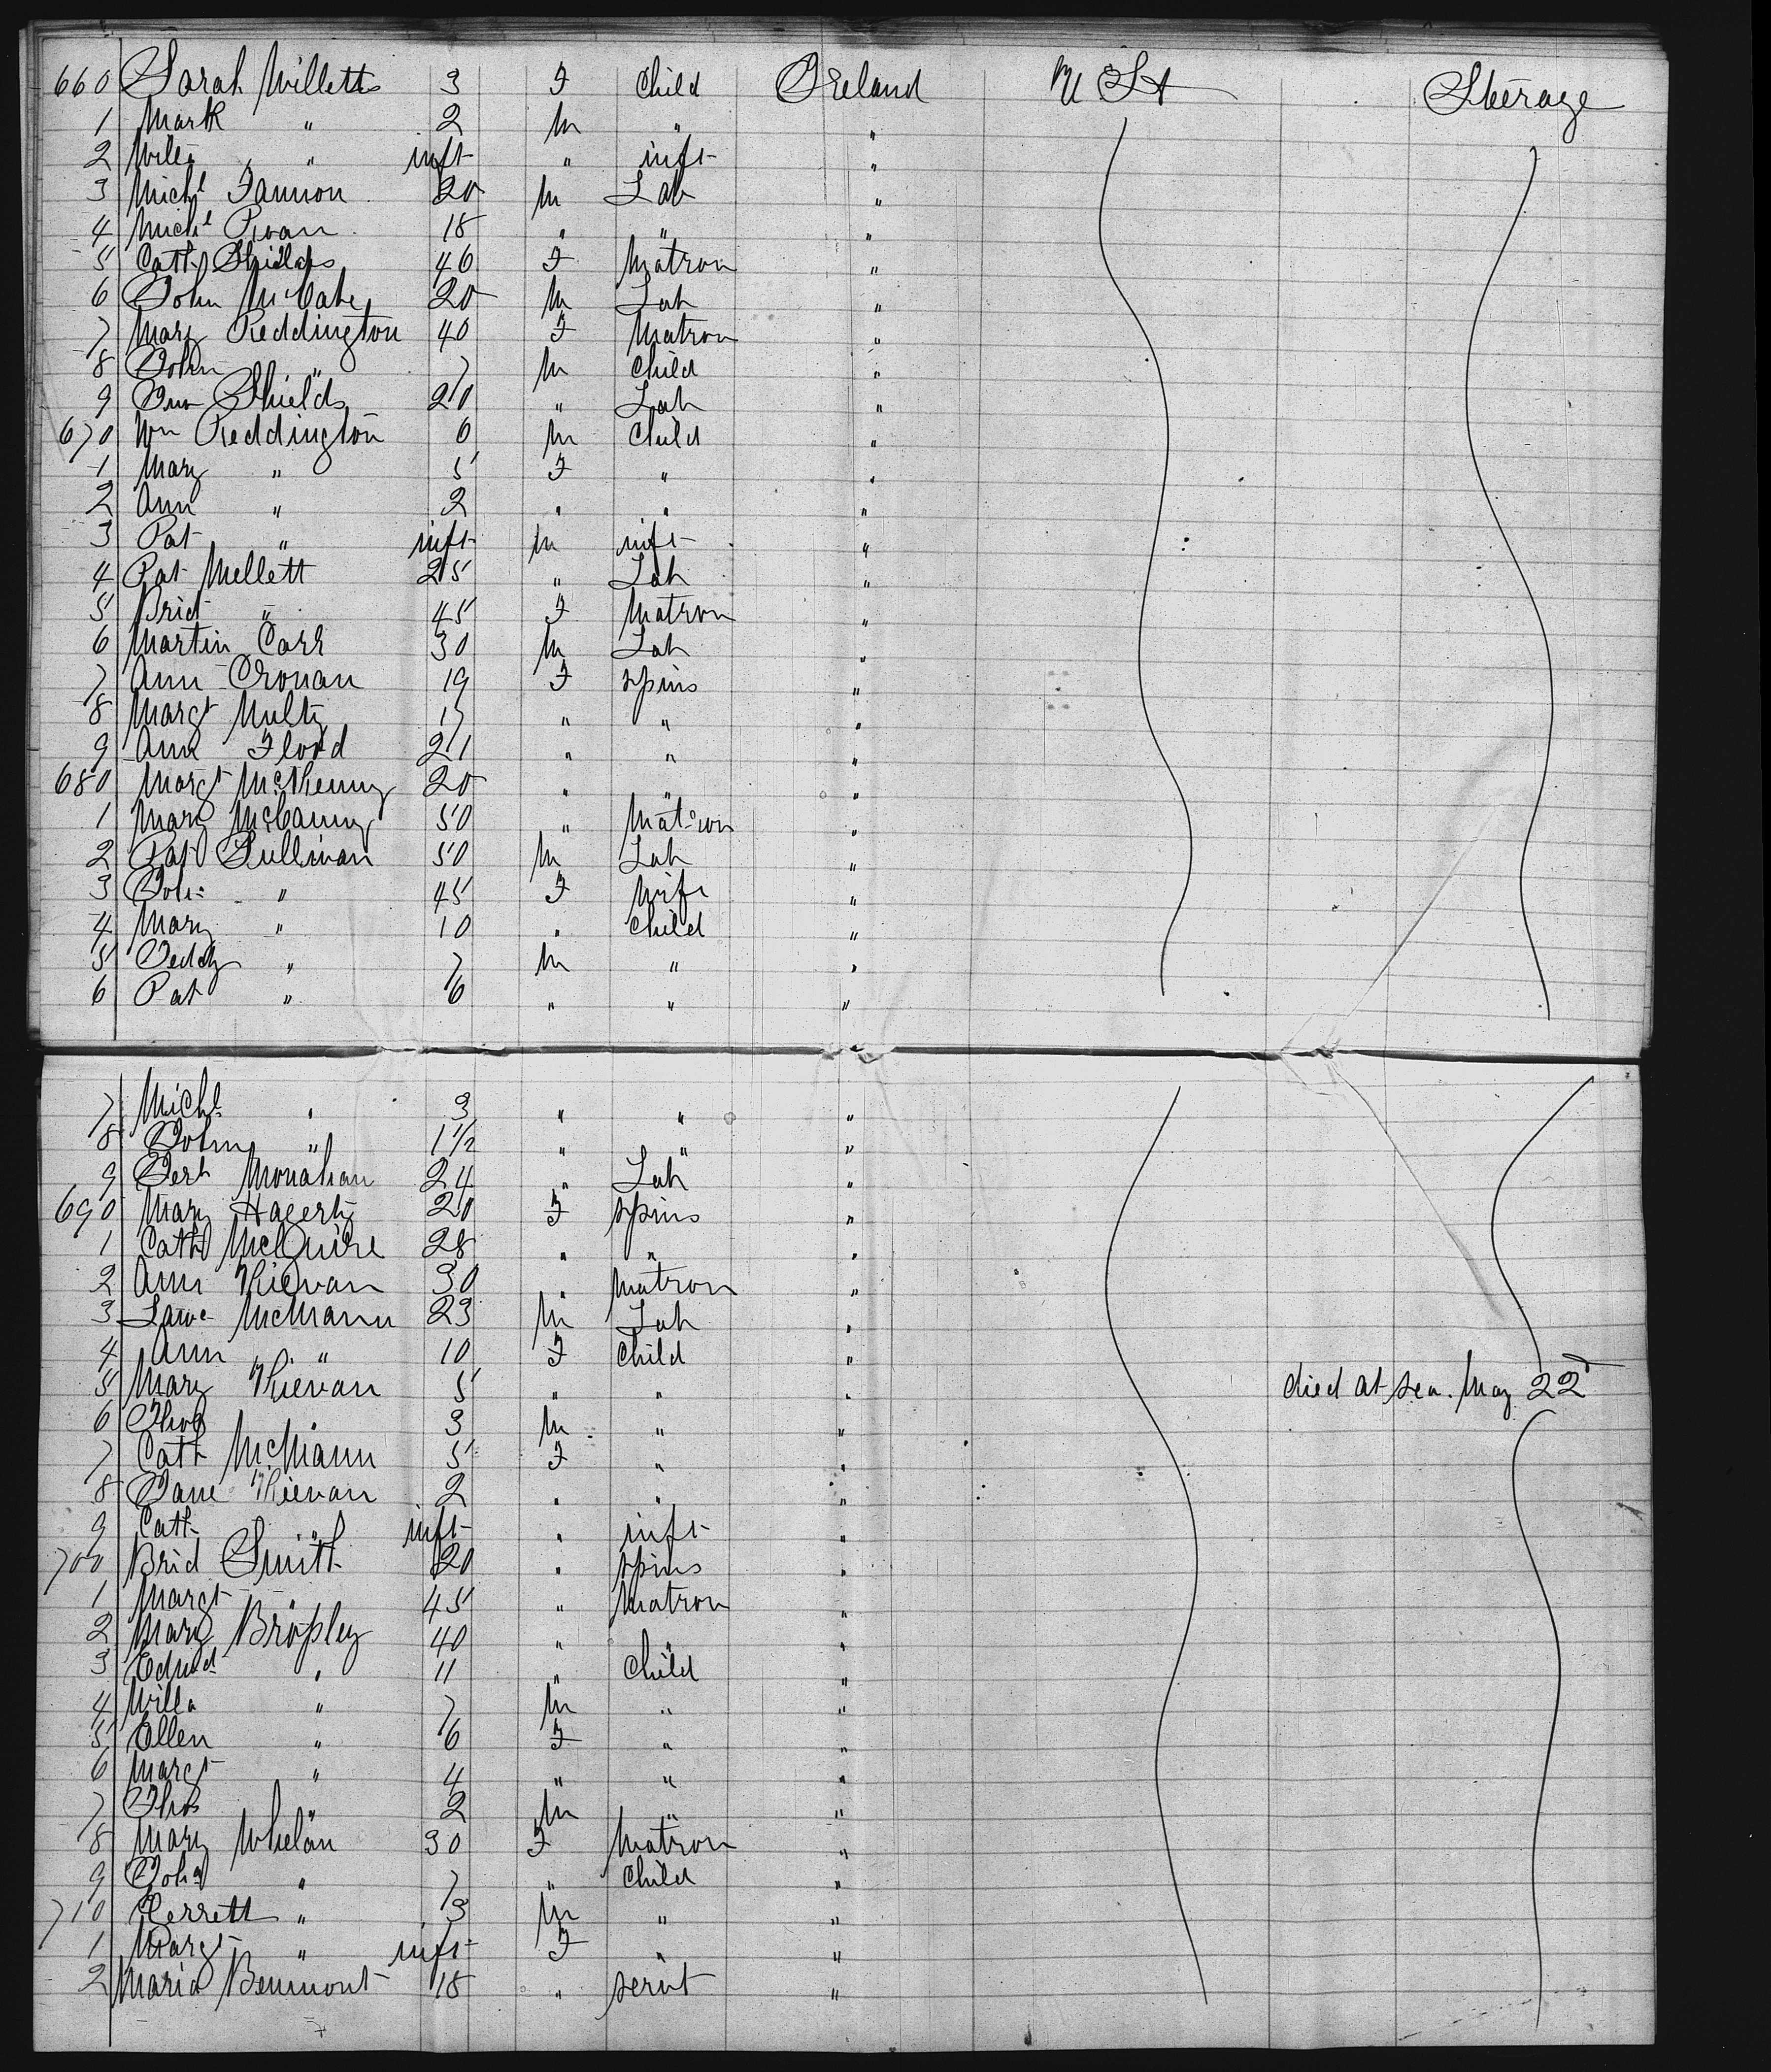 660 Sarah Willetts 3 F Child Ireland U St Sterage
1 Mark " 2 M " "
2 Will " inft " inft "
3 Michl Fannon 20 M Lab "
4 Michl 18 " " "
5 Cath Shields 40 F Matron "
6 John McCabe 20 M Lab "
7 Mary Reddington 40 F Matron "
8 John " 7 M Child "
9 Shields 20 " Lab "
670 Wm Reddington 6 M Child "
1 Mary " 5 F " "
2 Ann " 2 " " "
3 Pat " inft M inft "
4 Pat Mellett 25 " Lab "
5 Brid " 45 F Matron "
6 Martin Carr 30 M Lab "
7 Ann Cronan 19 F spins "
8 Margt Nulty 17 " " "
9 Ann Flood 21 " " "
680 Margt 20 " " "
1 Mary McCanny 50 " Matron "
2 Pat Sullivan 50 M Lab "
3 " 45 F Wife "
4 Mary " 10 " Child "
5 Teddy " 7 M " "
6 Pat " 6 " " "
7 Michl " 3 " " "
8 John " 1 1/2 " " "
9 Monahan 24 " Lab "
690 Mary Hagerty 20 F spins "
1 Cath McGuire 28 " " "
2 Ann Kievan 30 " Matron "
3 Lawe McMann 23 M Lab "
4 Ann " 10 F Child "
5 Mary Kievan 5 " " " died at sea. May 22d
6 Thos " 3 M " "
7 Cath McMann 5 F " "
8 Jane Kievan 2 " " "
9 Cath " inft " inft "
700 Brid Smith 20 " spins "
1 Margt " 45 " Matron "
2 Mary Brophy 40 " " "
3 Edwd " 11 " Child "
4 Willm " 7 M " "
5 Ellen " 6 F " "
6 Margt " 4 " " "
7 Thos " 2 M " "
8 Mary Whelan 30 F Matron "
9 " 7 " Child "
710 Perrett " 3 M " "
1 Margt " inft F " "
2 Maria Beumont 18 " servt "